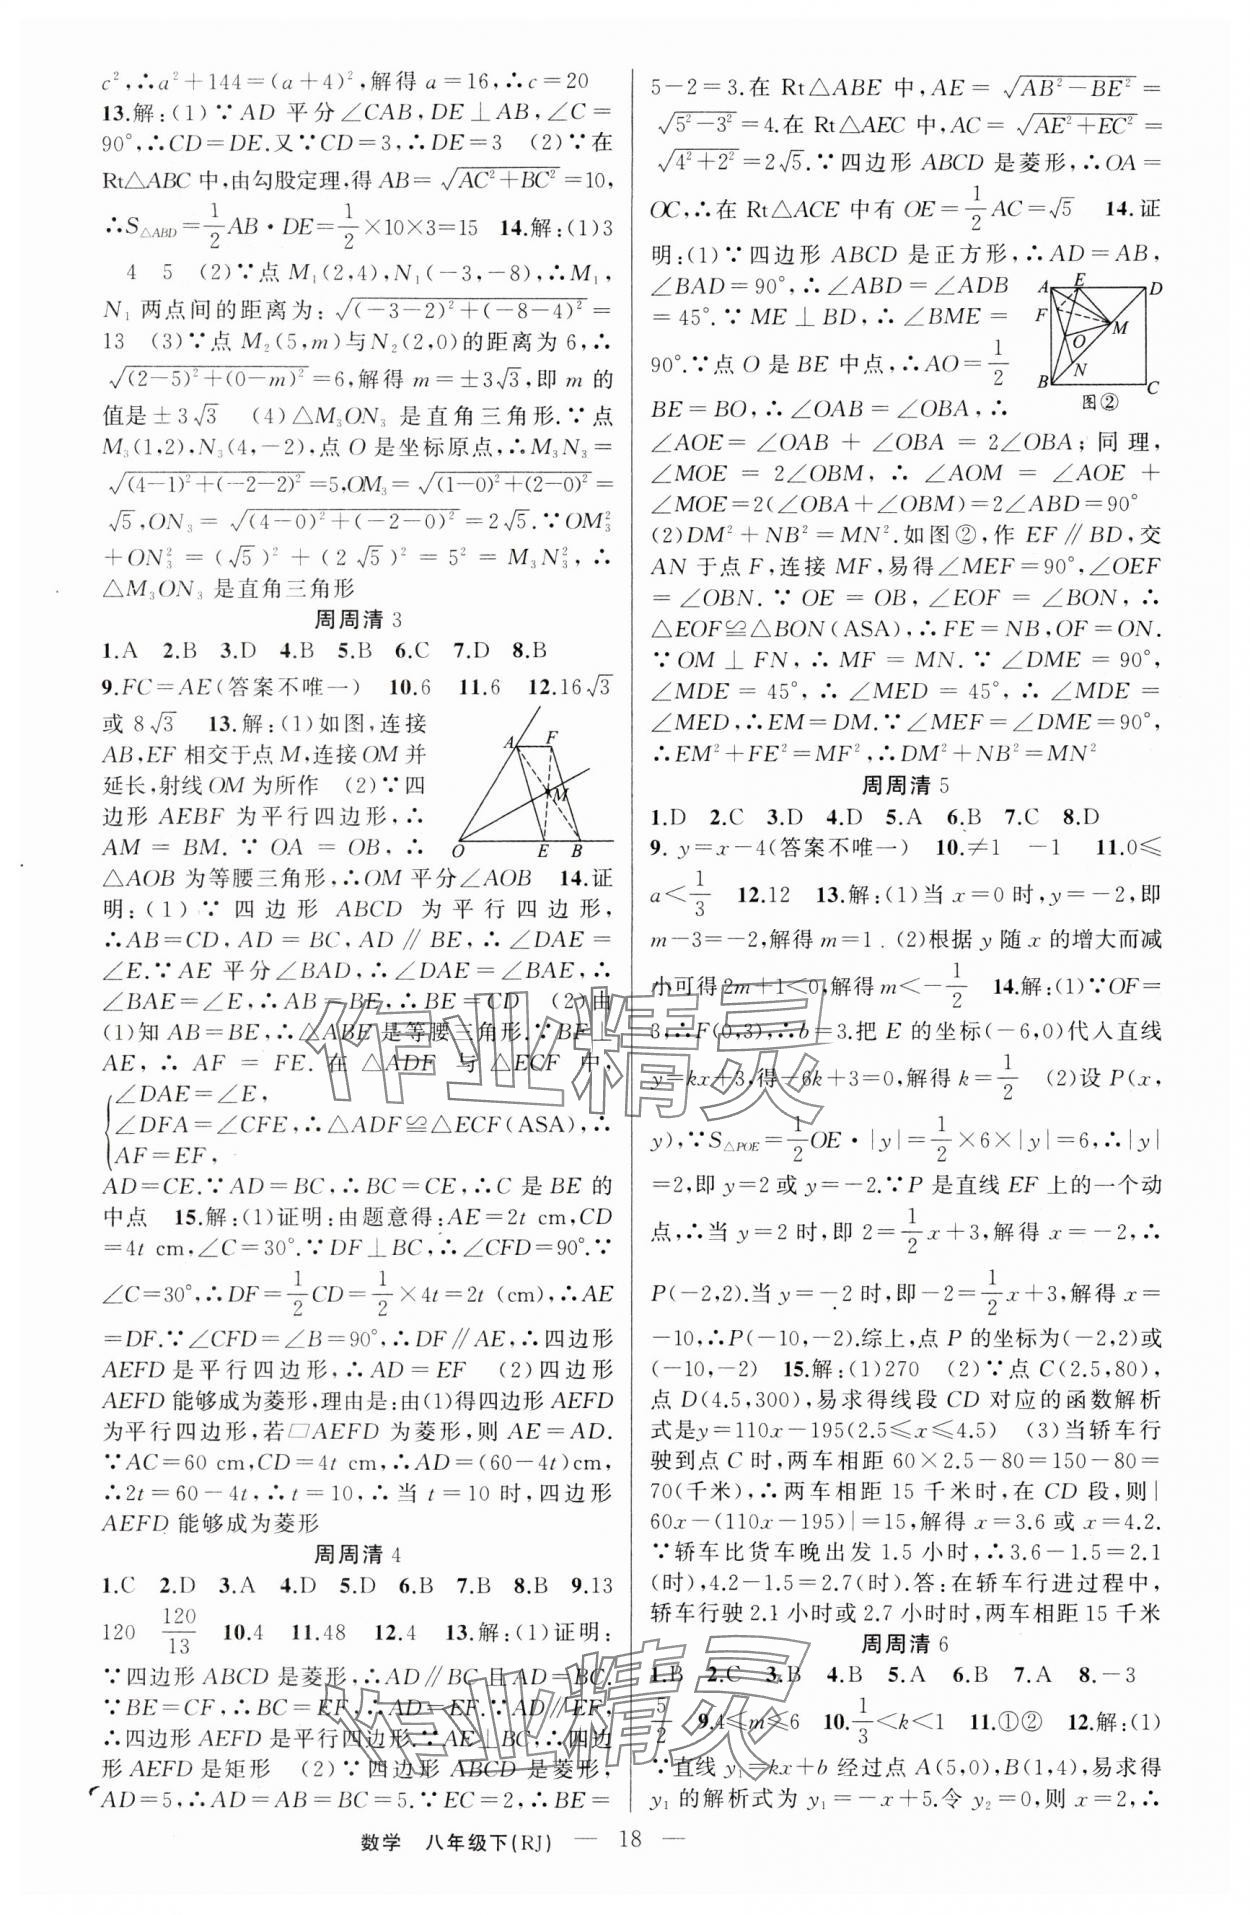 c²,∴a²+144=(a+4)²,解得a=16,∴c=20
13.解:(1)∵AD平分∠CAB,DE⊥AB,∠C=
90°,∴CD=DE.又∵CD=3,∴DE=3 (2)∵在
Rt△ABC中,由勾股定理,得AB=√(AC²+BC²)=10,
∴S△ABD=1/2AB·DE=1/2×10×3=15 14.解:(1)3
4 5 (2)∵点M₁(2,4),N₁(-3,-8),∴M₁,
N₁两点间的距离为:√((-3-2)²+(-8-4)²)=
13 (3)∵点M₂(5,m)与N₂(2,0)的距离为6,∴
√((2-5)²+(0-m)²)=6,解得m=±3√3,即m的
值是±3√3 (4)△M₃ON₃是直角三角形.∵点
M₃(1,2),N₃(4,-2),点O是坐标原点,∴M₃N₃=
√((4-1)²+(-2-2)²)=5,OM₃=√((1-0)²+(2-0)²)=
√5,ON₃=√((4-0)²+(-2-0)²)=2√5.∵OM₃²
+ON₃²=(√5)²+(2√5)²=5²=M₃N₃²,∴
△M₃ON₃是直角三角形
周周清3
1.A 2.B 3.D 4.B 5.B 6.C 7.D 8.B
9.FC=AE(答案不唯一) 10.6 11.6 12.16√3
或8√3 13.解:(1)如图,连接
AB,EF相交于点M,连接OM并
延长,射线OM为所作 (2)∵四
边形AEBF为平行四边形,∴
AM=BM.∵OA=OB,∴
△AOB为等腰三角形,∴OM平分∠AOB 14.证
A F M O E B
明:(1)∵四边形ABCD为平行四边形,
∴AB=CD,AD=BC,AD∥BE,∴∠DAE=
∠E.∵AE平分∠BAD,∴∠BAE=∠DAE,∴
∠BAE=∠E,∴AB=BE,∴BE=CD (2)由
(1)知AB=BE,∴△ABE是等腰三角形.∵BF⊥
AE,∴AF=FE.在△ADF与△ECF中,
∠DAE=∠E,
∠DFA=∠CFE,∴△ADF≌△ECF(ASA),∴
AF=EF,
AD=CE.∵AD=BC,∴BC=CE,∴C是BE的
中点 15.解:(1)证明:由题意得:AE=2t cm,CD
=4t cm,∠C=30°.∵DF⊥BC,∴∠CFD=90°.∵
∠C=30°,∴DF=1/2CD=1/2×4t=2t(cm),∴AE
=DF.∵∠CFD=∠B=90°,∴DF∥AE,∴四边形
AEFD是平行四边形,∴AD=EF (2)四边形
AEFD能够成为菱形,理由是:由(1)得四边形AEFD
为平行四边形,若▱AEFD为菱形,则AE=AD.
∵AC=60 cm,CD=4t cm,∴AD=(60-4t)cm,
∴2t=60-4t,∴t=10,∴当t=10时,四边形
AEFD能够成为菱形
周周清4
1.C 2.D 3.A 4.D 5.D 6.B 7.B 8.B 9.13
120 120/13 10.4 11.48 12.4 13.解:(1)证明:
∵四边形ABCD是菱形,∴AD∥BC且AD=BC.
∵BE=CF,∴BC=EF,∴AD=EF.∵AD∥EF,
∴四边形AEFD是平行四边形.∵AE⊥BC,∴四边
形AEFD是矩形 (2)∵四边形ABCD是菱形,
AD=5,∴AD=AB=BC=5.∵EC=2,∴BE=
5-2=3.在Rt△ABE中,AE=√(AB²-BE²)=
√(5²-3²)=4.在Rt△AEC中,AC=√(AE²+EC²)=
√(4²+2²)=2√5.∵四边形ABCD是菱形,∴OA=
OC,∴在Rt△ACE中有OE=1/2AC=√5 14.证
明:(1)∵四边形ABCD是正方形,∴AD=AB,
∠BAD=90°,∴∠ABD=∠ADB
=45°.∵ME⊥BD,∴∠BME=
90°.∵点O是BE中点,∴AO=1/2
BE=BO,∴∠OAB=∠OBA,∴
A E D F M O N B C
图②
∠AOE=∠OAB+∠OBA=2∠OBA;同理,
∠MOE=2∠OBM,∴∠AOM=∠AOE+
∠MOE=2(∠OBA+∠OBM)=2∠ABD=90°
(2)DM²+NB²=MN².如图②,作EF∥BD,交
AN于点F,连接MF,易得∠MEF=90°,∠OEF
=∠OBN.∵OE=OB,∠EOF=∠BON,∴
△EOF≌△BON(ASA),∴FE=NB,OF=ON.
∵OM⊥FN,∴MF=MN.∵∠DME=90°,
∠MDE=45°,∴∠MED=45°,∴∠MDE=
∠MED,∴EM=DM.∵∠MEF=∠DME=90°,
∴EM²+FE²=MF²,∴DM²+NB²=MN²
周周清5
1.D 2.C 3.D 4.D 5.A 6.B 7.C 8.D
9.y=x-4(答案不唯一) 10.≠1 -1 11.0≤
a<1/3 12.12 13.解:(1)当x=0时,y=-2,即
m-3=-2,解得m=1. (2)根据y随x的增大而减
小可得2m+1<0,解得m<-1/2 14.解:(1)∵OF=
3,∴F(0,3),∴b=3.把E的坐标(-6,0)代入直线
y=kx+3,得-6k+3=0,解得k=1/2 (2)设P(x,
y),∵S△POE=1/2OE·|y|=1/2×6×|y|=6,∴|y|
=2,即y=2或y=-2.∵P是直线EF上的一个动
点,∴当y=2时,即2=1/2x+3,解得x=-2,∴
P(-2,2).当y=-2时,即-2=1/2x+3,解得x=
-10,∴P(-10,-2).综上,点P的坐标为(-2,2)或
(-10,-2) 15.解:(1)270 (2)∵点C(2.5,80),
点D(4.5,300),易求得线段CD对应的函数解析
式是y=110x-195(2.5≤x≤4.5) (3)当轿车行
驶到点C时,两车相距60×2.5-80=150-80=
70(千米),∴两车相距15千米时,在CD段,则|
60x-(110x-195)|=15,解得x=3.6或x=4.2.
∵轿车比货车晚出发1.5小时,∴3.6-1.5=2.1
(时),4.2-1.5=2.7(时).答:在轿车行进过程中,
轿车行驶2.1小时或2.7小时时,两车相距15千米
周周清6
1.B 2.C 3.B 4.B 5.A 6.B 7.A 8.-3
5/2 9.4≤m≤6 10.1/3<k<1 11.①② 12.解:(1)
∵直线y₁=kx+b经过点A(5,0),B(1,4),易求得
y₁的解析式为y₁=-x+5.令y₂=0,则x=2,∴
数学 八年级下(RJ) — 18 —
作业精灵
作业精灵